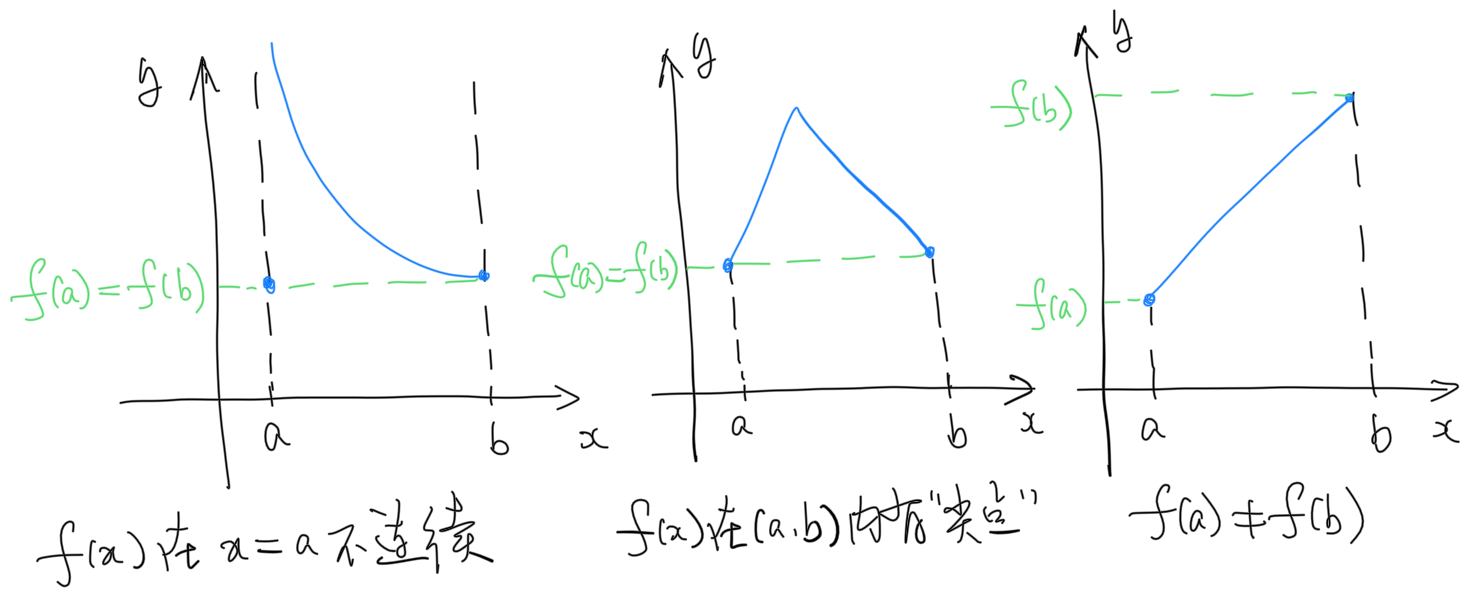 y
f(a)=f(b)
a
b
x
f(x)在x=a不连续
y
f(a)=f(b)
a
b
x
f(x)在(a,b)内有“尖点”
y
f(b)
f(a)
a
b
x
f(a)≠f(b)